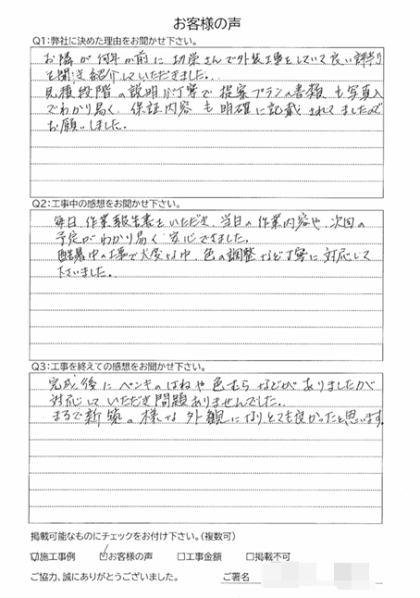 お客様の声
Q1:弊社に決めた理由をお聞かせ下さい。
お隣が何年か前に 功学さんで外装工事をしていて良い評判
を聞き紹介していただきました。
見積段階の説明が丁寧で 提案プランの書類も写真入
でわかり易く、保証内容も明確に記載されてましたので
お願いしました。
Q2:工事中の感想をお聞かせ下さい。
毎日、作業報告書をいただき、当日の作業内容や、次回の
予定がわかり易く安心できました。
酷暑中の工事で大変な中、色の調整など丁寧に対応して
下さいました。
Q3:工事を終えての感想をお聞かせ下さい。
完成後にペンキのはねや色むらなどがありましたが
対応していただき問題ありませんでした。
まるで新築の様な外観になりとても良かったと思います。
掲載可能なものにチェックをお付け下さい。(複数可)
☑施工事例 ☑お客様の声 □工事金額 □掲載不可
ご協力、誠にありがとうございました。 ご署名